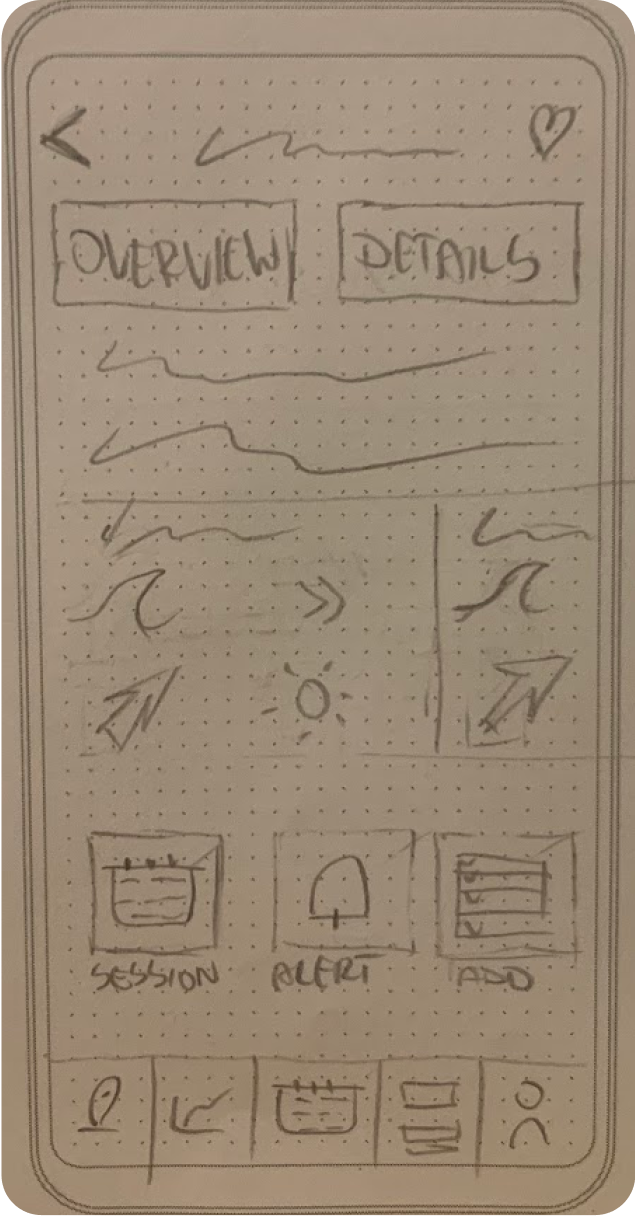 OVERVIEW DETAILS
SESSION ALERT ADD